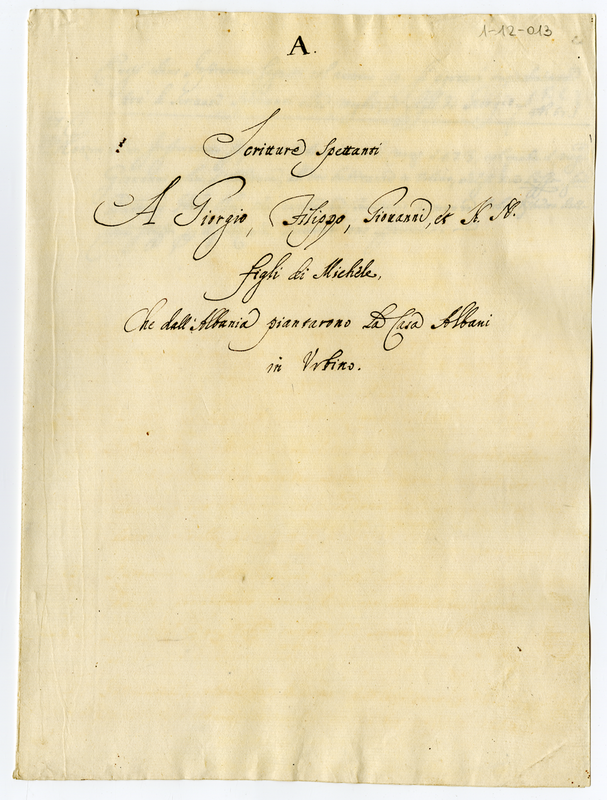 1-12-013
A.
Scritture Spettanti
A Giorgio, Filippo, Giouanni, et N. N.
figli di Michele,
Che dall'Albania piantarono La Casa Albani
in Vrbino.